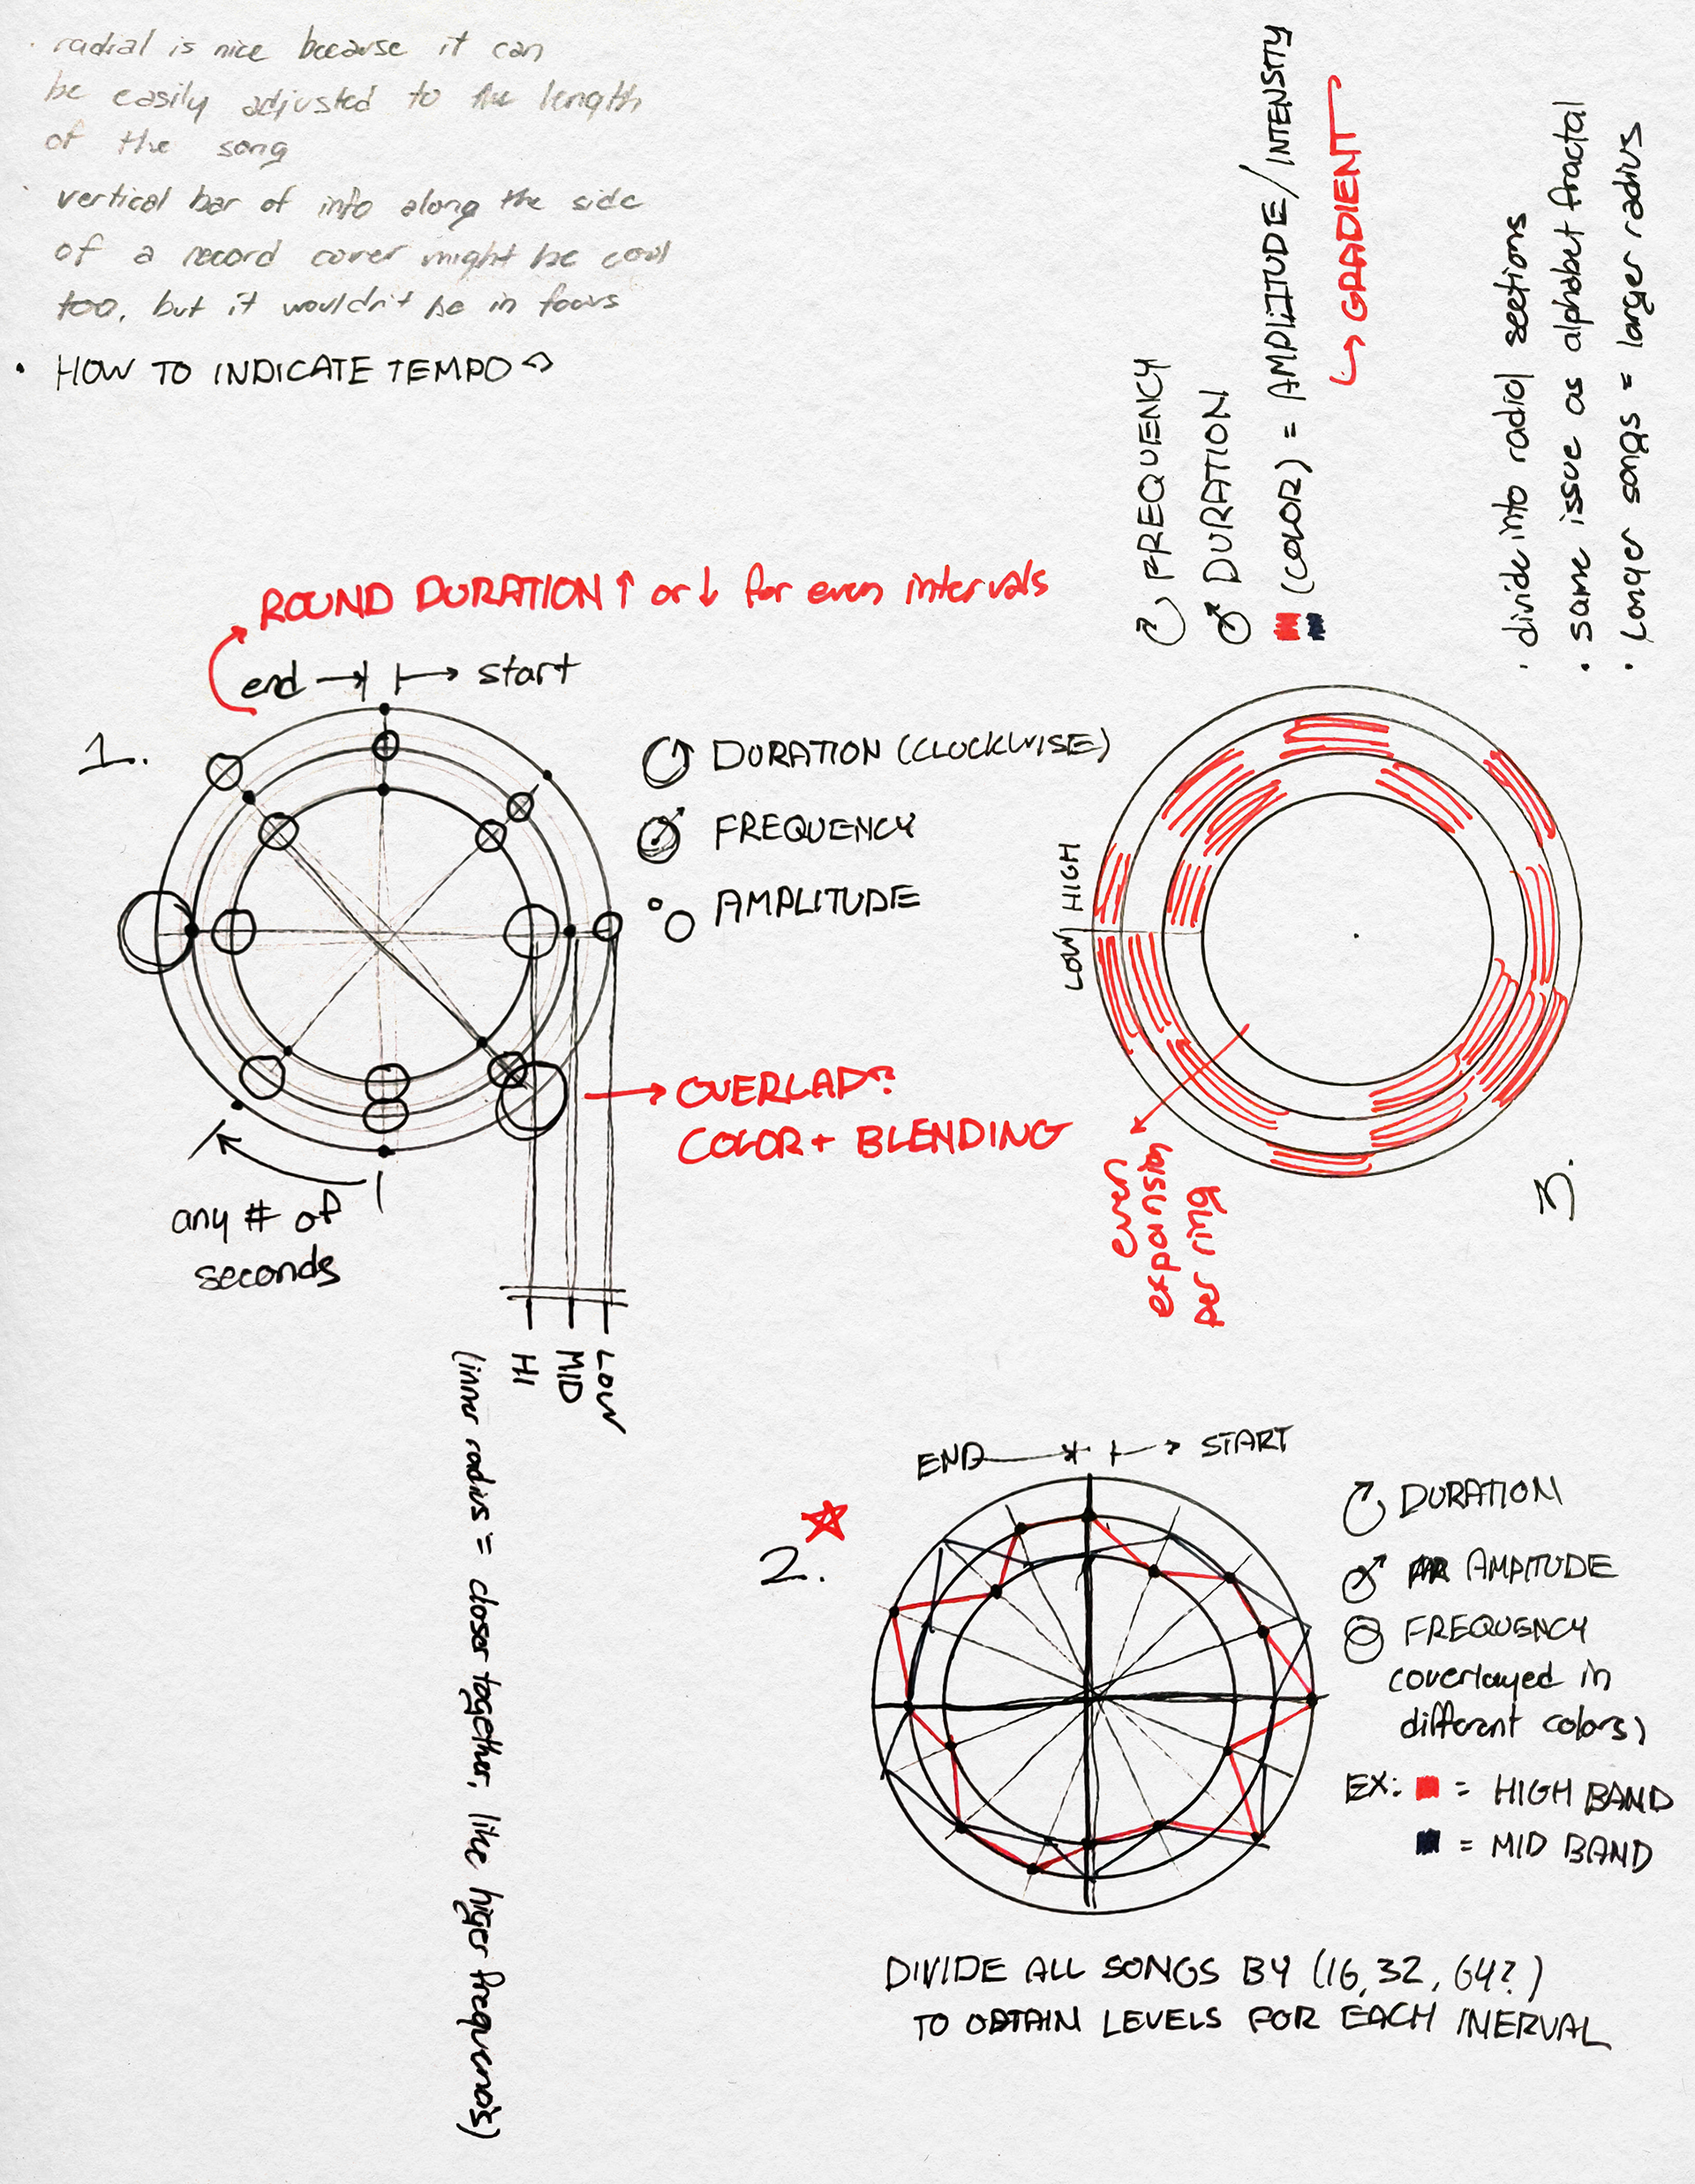 · radial is nice because it can
be easily adjusted to the length
of the song
· vertical bar of info along the side
of a record cover might be cool
too, but it wouldn't be in focus
· HOW TO INDICATE TEMPO?
FREQUENCY
DURATION
(COLOR) = AMPLITUDE/INTENSITY
↳ GRADIENT
· divide into radial seetions
· same issue as alphabet fractal
· Longer songs = larger radius
ROUND DURATION ↑ or ↓ for even intervals
end → start
1.
DURATION (CLOCKWISE)
FREQUENCY
AMPLITUDE
→ OVERLAP?
COLOR + BLENDING
any # of
seconds
HI
MID
LOW
(inner radius = closer together, like higer frequencies)
LOW HIGH
even
expansion
per ring
3.
END → START
2.
DURATION
AMPITUDE
FREQUENCY
(overlayed in
different colors)
EX: = HIGH BAND
= MID BAND
DIVIDE ALL SONGS BY (16, 32, 64?)
TO OBTAIN LEVELS FOR EACH INERVAL